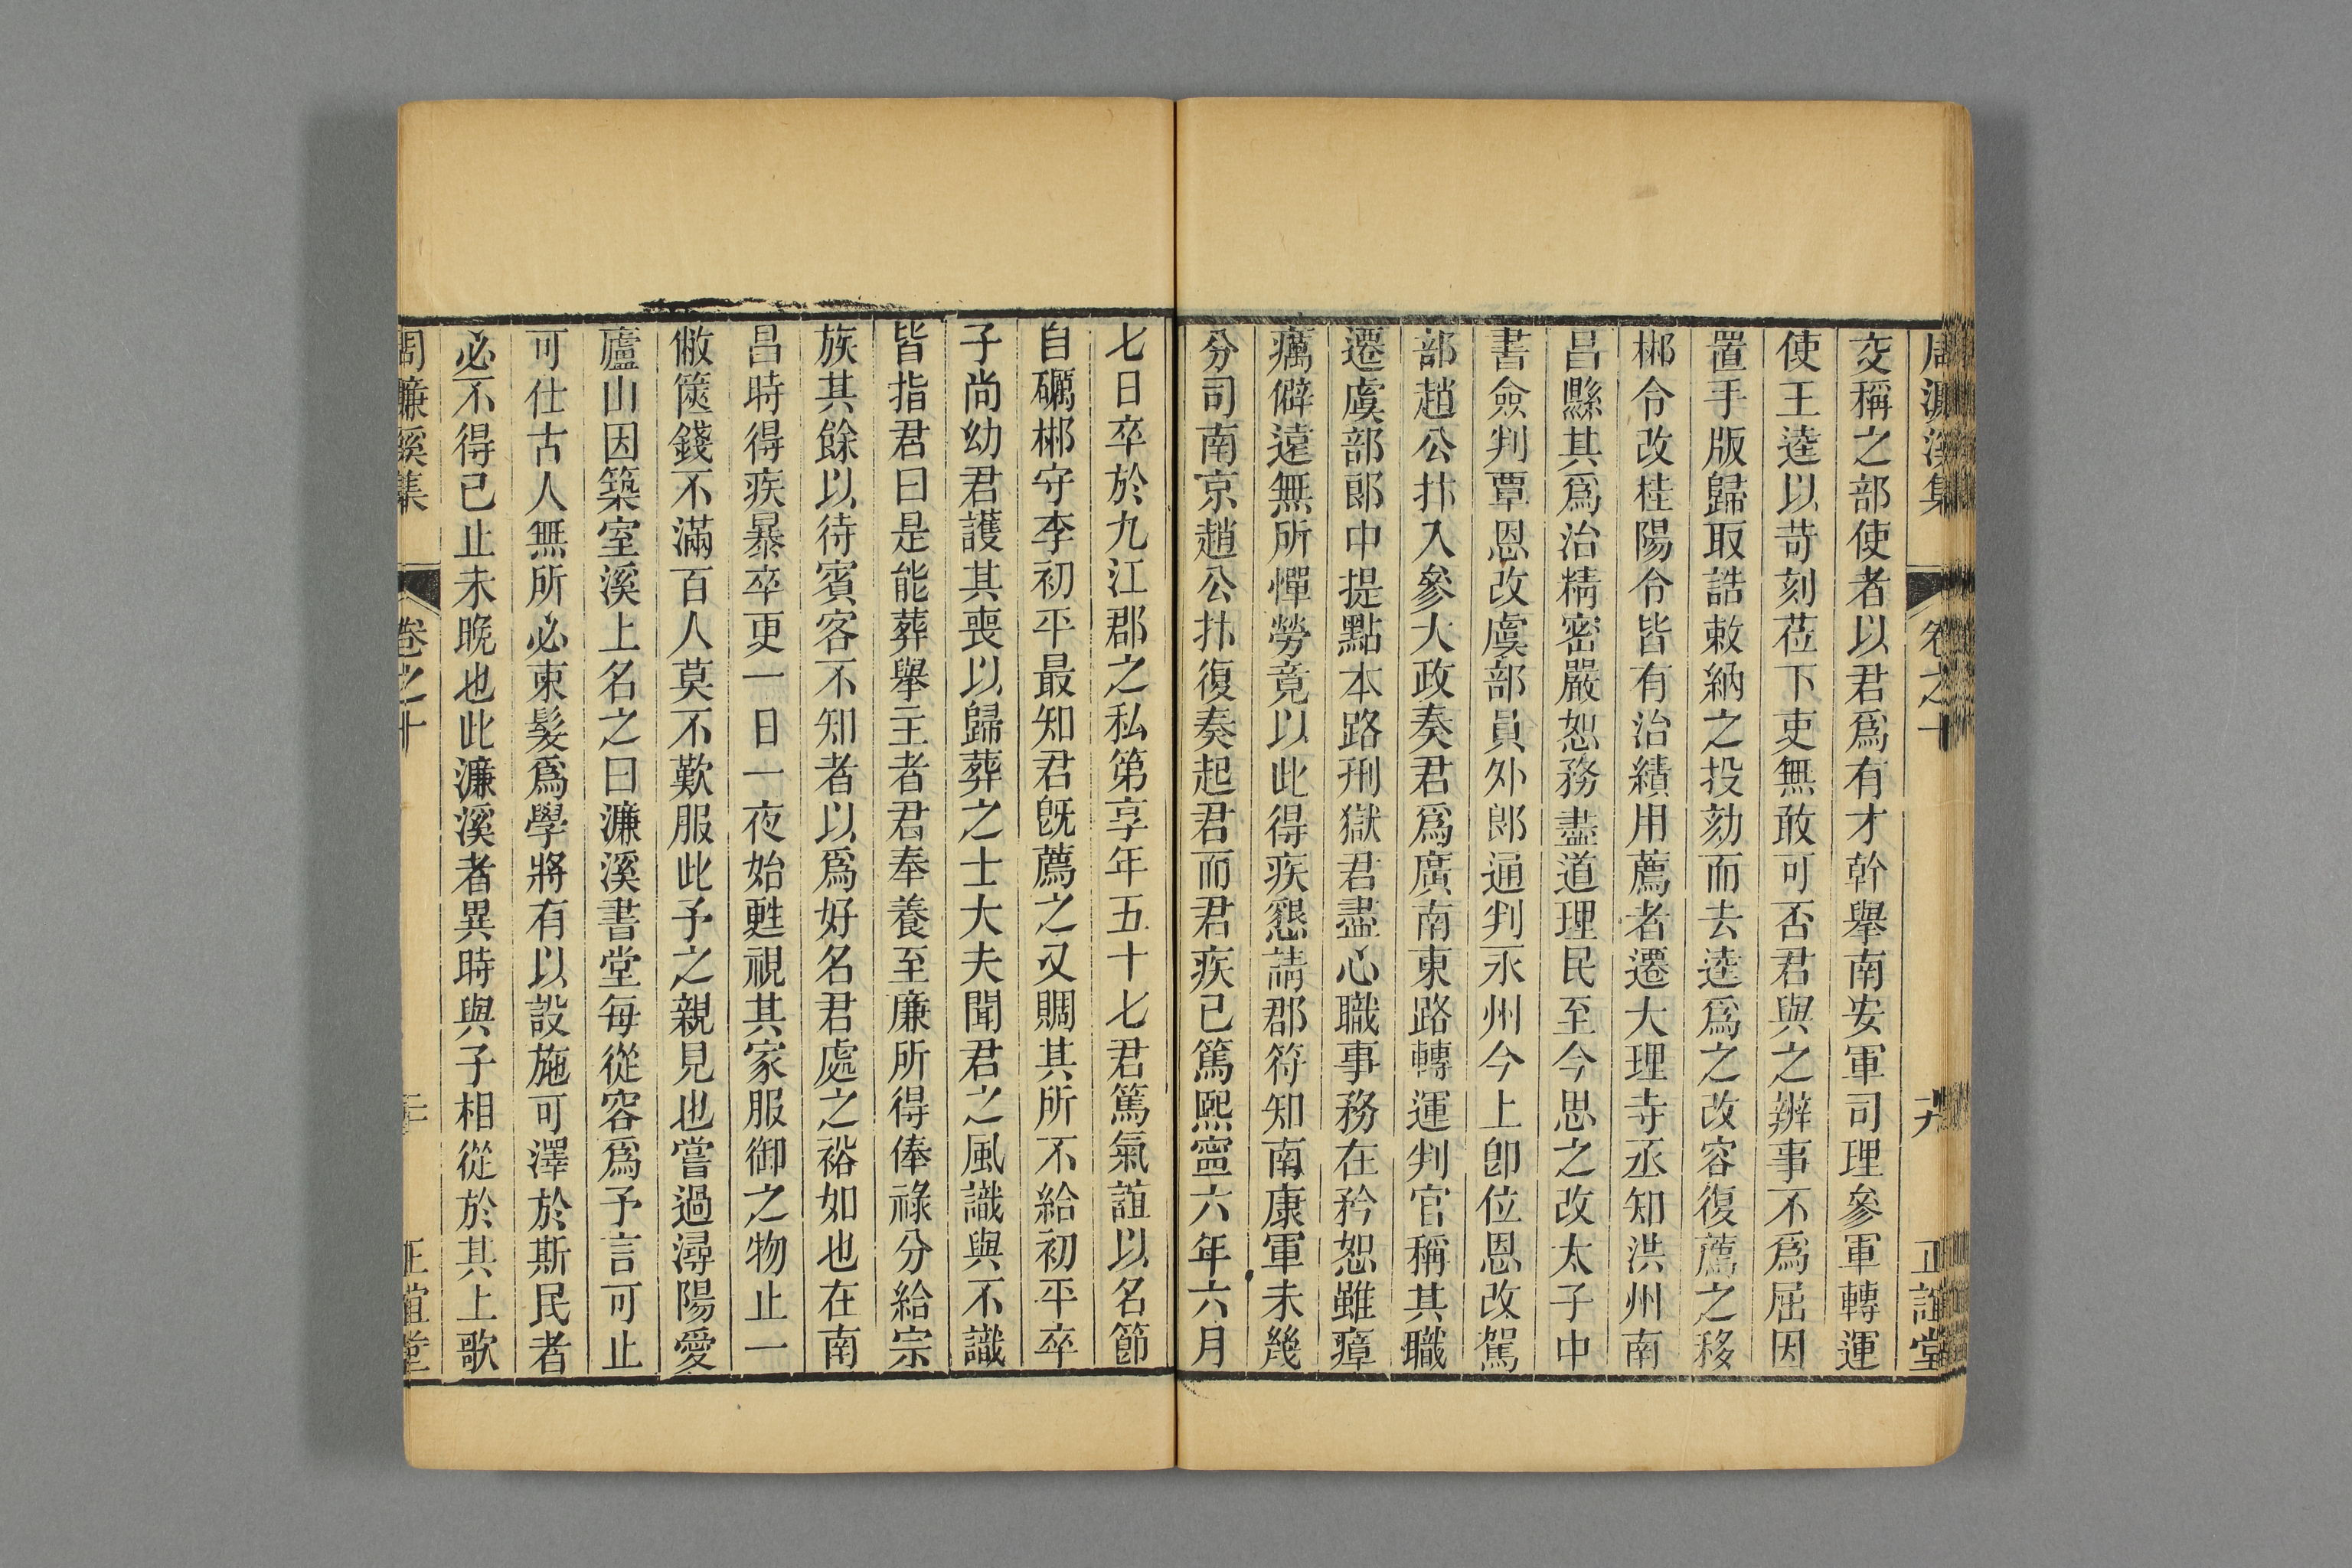 周濂溪集 卷之十 十九 正誼堂
交稱之部使者以君爲有才幹舉南安軍司理參軍轉運
使王逵以苛刻莅下吏無敢可否君與之辨事不爲屈因
置手版歸取誥敕納之投劾而去逵爲之改容復薦之移
郴令改桂陽令皆有治績用薦者遷大理寺丞知洪州南
昌縣其爲治精密嚴恕務盡道理民至今思之改太子中
書僉判覃恩改虞部員外郎通判永州今上卽位恩改駕
部趙公抃入參大政奏君爲廣南東路轉運判官稱其職
遷虞部郎中提點本路刑獄君盡心職事務在矜恕雖瘴
癘僻遠無所憚勞竟以此得疾懇請郡符知南康軍未幾
分司南京趙公抃復奏起君而君疾已篤熙寧六年六月
七日卒於九江郡之私第享年五十七君篤氣誼以名節
自礪郴守李初平最知君旣薦之又賙其所不給初平卒
子尚幼君護其喪以歸葬之士大夫聞君之風識與不識
皆指君曰是能葬舉主者君奉養至廉所得俸祿分給宗
族其餘以待賓客不知者以爲好名君處之裕如也在南
昌時得疾暴卒更一日一夜始甦視其家服御之物止一
敝篋錢不滿百人莫不歎服此予之親見也嘗過潯陽愛
廬山因築室溪上名之曰濂溪書堂每從容爲予言可止
可仕古人無所必束髮爲學將有以設施可澤於斯民者
必不得已止未晚也此濂溪者異時與子相從於其上歌
周濂溪集 卷之十 二十 正誼堂